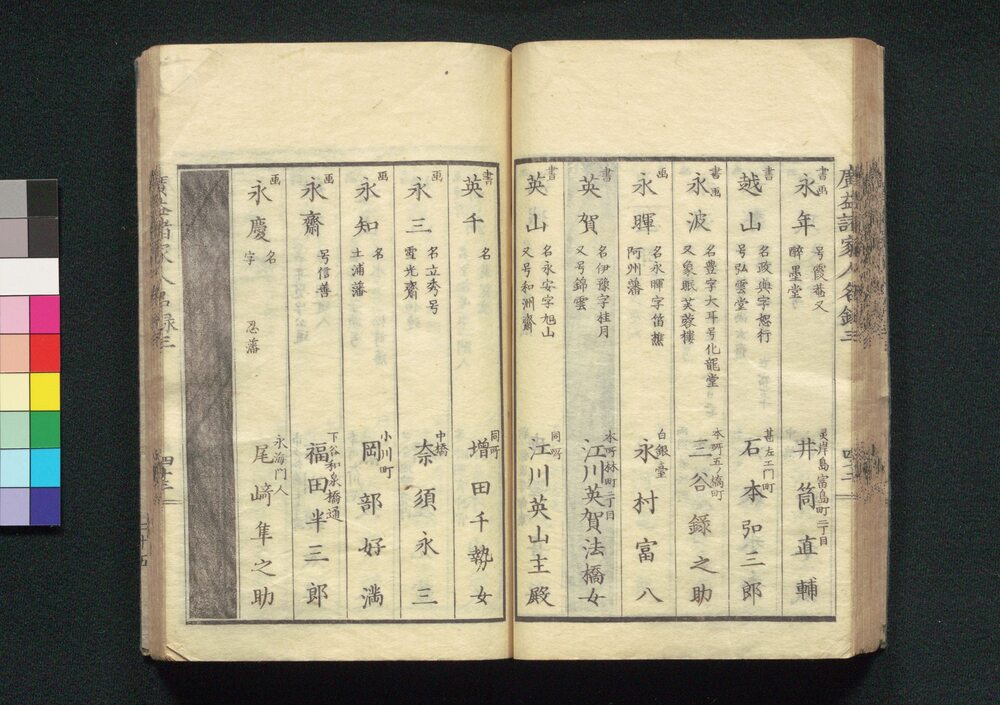 廣益諸家人名録三
書画 永年 号霞菴又醉墨堂 霊岸島富島町二丁目 井筒直輔
書 越山 名政與字恕行号弘雲堂 甚左エ門町 石本弘三郎
書画 永波 名豊字大耳号化龍堂又象眠芙蓉楼 本所五ノ橋町 三谷録之助
画 永暉 名永暉字笛樵阿州藩 白銀臺 永村富八
書 英賀 名伊豫字桂月又号錦雲 本所林町二丁目 江川英賀法橋女
書 英山 名永安字旭山又号和洲齋 同所 江川英山主殿
書 英千 名 同所 増田千勢女
画 永三 名立秀号雪光齋 中橋 奈須永三
画 永知 名 土浦藩 小川町 岡部好満
画 永齋 号信善 下谷和泉橋通 福田半三郎
画 永慶 名 字 忍藩 永海門人 尾﨑隼之助